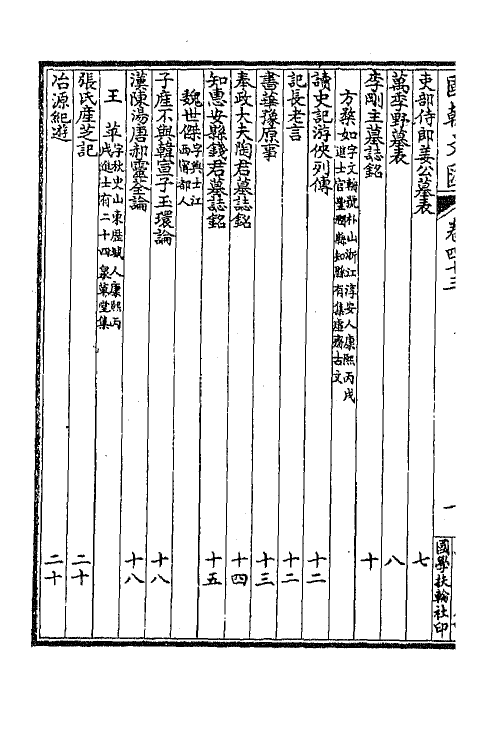 國朝文匯 卷四十三 一 國學扶輪社印
吏部侍郎姜公墓表 七
萬季野墓表 八
李剛主墓誌銘 十
方楘如 字文輈號朴山浙江淳安人康熙丙戌進士官豐潤縣知縣有集虛齋古文
讀史記游俠列傳 十二
記長老言 十二
書蓫豫原事 十三
奉政大夫陶君墓誌銘 十四
知惠安縣錢君墓誌銘 十五
魏世傑 字興士江西甯都人
子產不與韓宣子玉環論 十八
漢陳湯唐郝靈荃論 十八
王苹 字秋史山東歷城人康熙丙戌進士有二十四泉草堂集
張氏產芝記 二十
冶源紀遊 二十